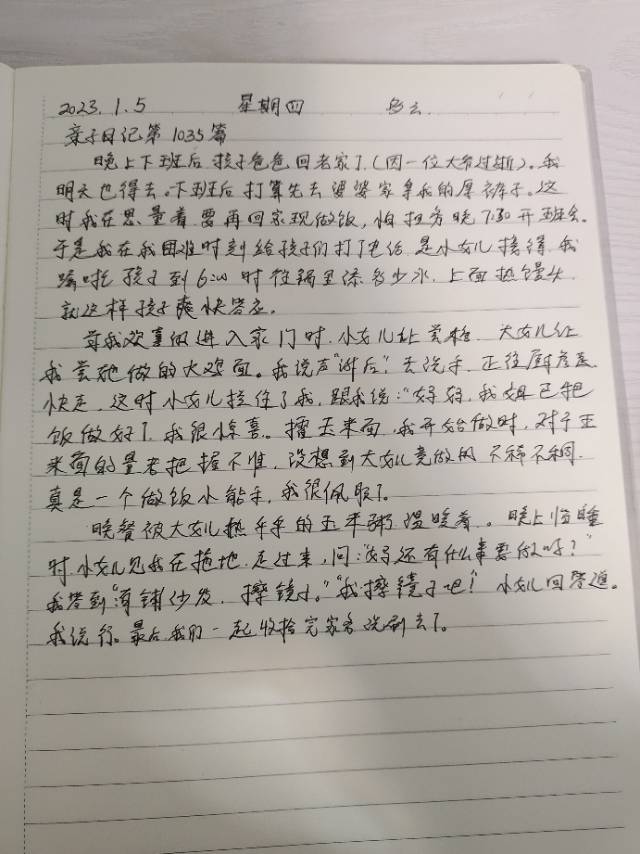 2023.1.5 星期四 多云
亲子日记第1035篇
晚上下班后孩子爸爸回老家了(因一位大爷过逝)。我
明天也得去。下班后打算先去婆婆家拿我的厚裤子。这
时我在思量着要再回家现做饭,怕担务晚7:30开班会。
于是我在我困难时刻给孩子们打了电话,是小女儿接得,我
嘱咐孩子到6:00时往锅里添多少水,上面热馒头
就这样孩子爽快答应。
等我欢喜的进入家门时,小女儿让尝格,大女儿让
我尝她做的大鸡面。我说声"淋后",去洗手,正往厨房
快走,这时小女儿拉住了我,跟我说:"妈妈,我姐已把
饭做好了,我很惊喜。搅玉米面,我开始做时,对于玉
米面的量老把握不准,没想到大女儿竟做的不稀不稠,
真是一个做饭小能手,我很佩服了。
晚餐被大女儿热乎乎的玉米粥温暖着。晚上临睡
时,小女儿见我在拖地,走过来,问:"妈还有什么事要做吗?"
我答到"有铺沙发,擦镜子。""我擦镜子吧!"小女儿回答道。
我说行。最后我们一起收拾完家务洗刷去了。